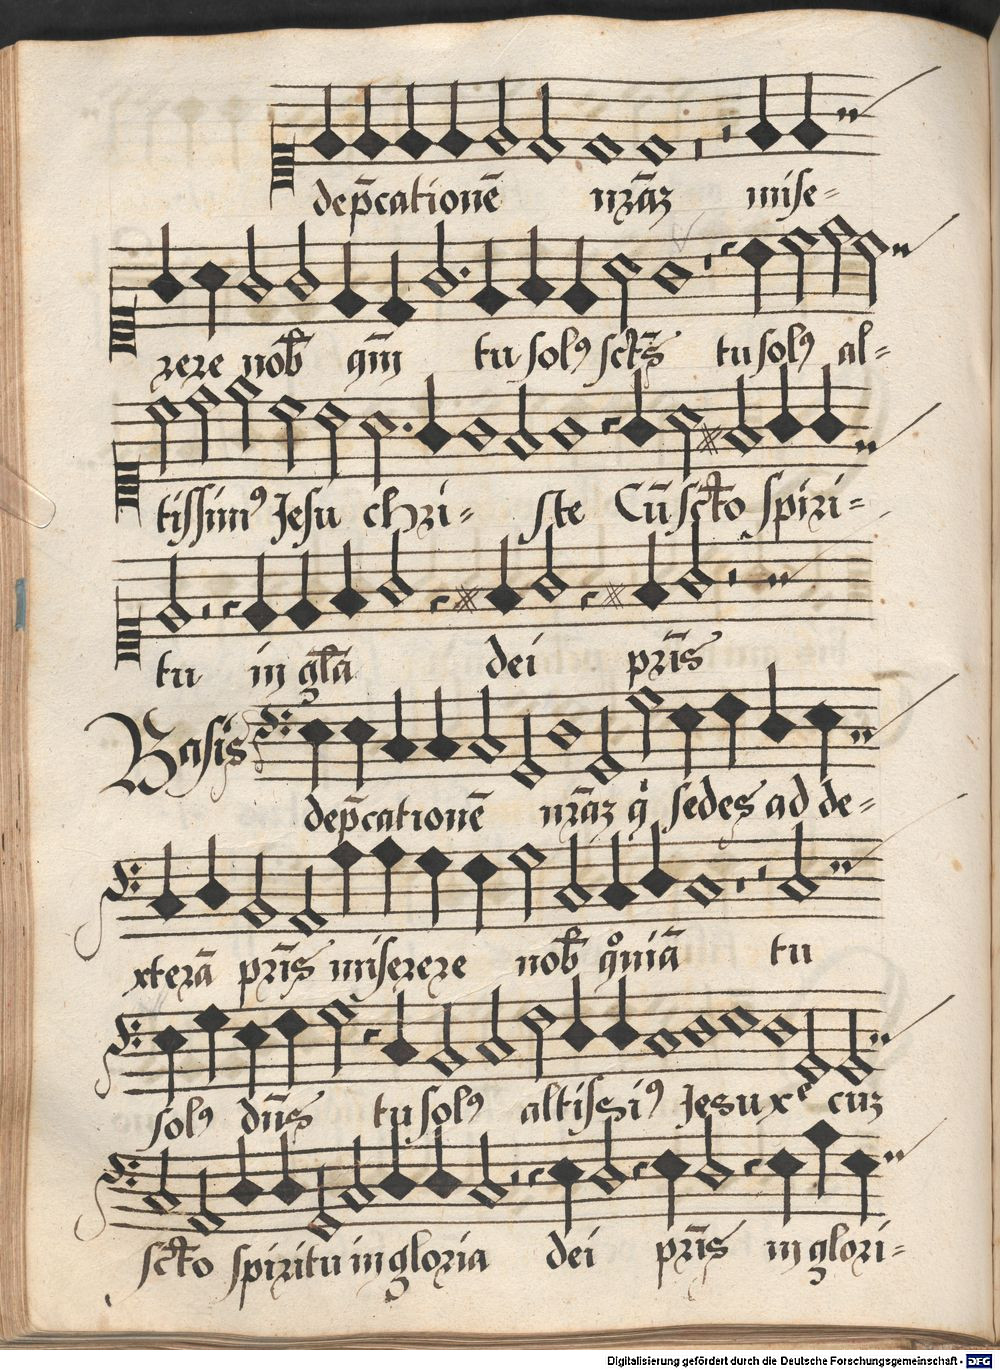 dep̄cationē nr̄āz mise=
rere nob̄ qm̄ tu solꝰ sct̄s tu solꝰ al=
tissimꝰ Jesu chri= ste Cū sct̄o spiri=
tu in gl̄a dei pr̄is
Basis
dep̄cationē nr̄āz q̊ sedes ad de=
xterā pr̄is miserere nob̄ qͦniā tu
solꝰ dn̄s tu solꝰ altissiꝰ Jesu xͤ cuz
sct̄o spiritu in gloria dei pr̄is in glori=
Digitalisierung gefördert durch die Deutsche Forschungsgemeinschaft - DFG